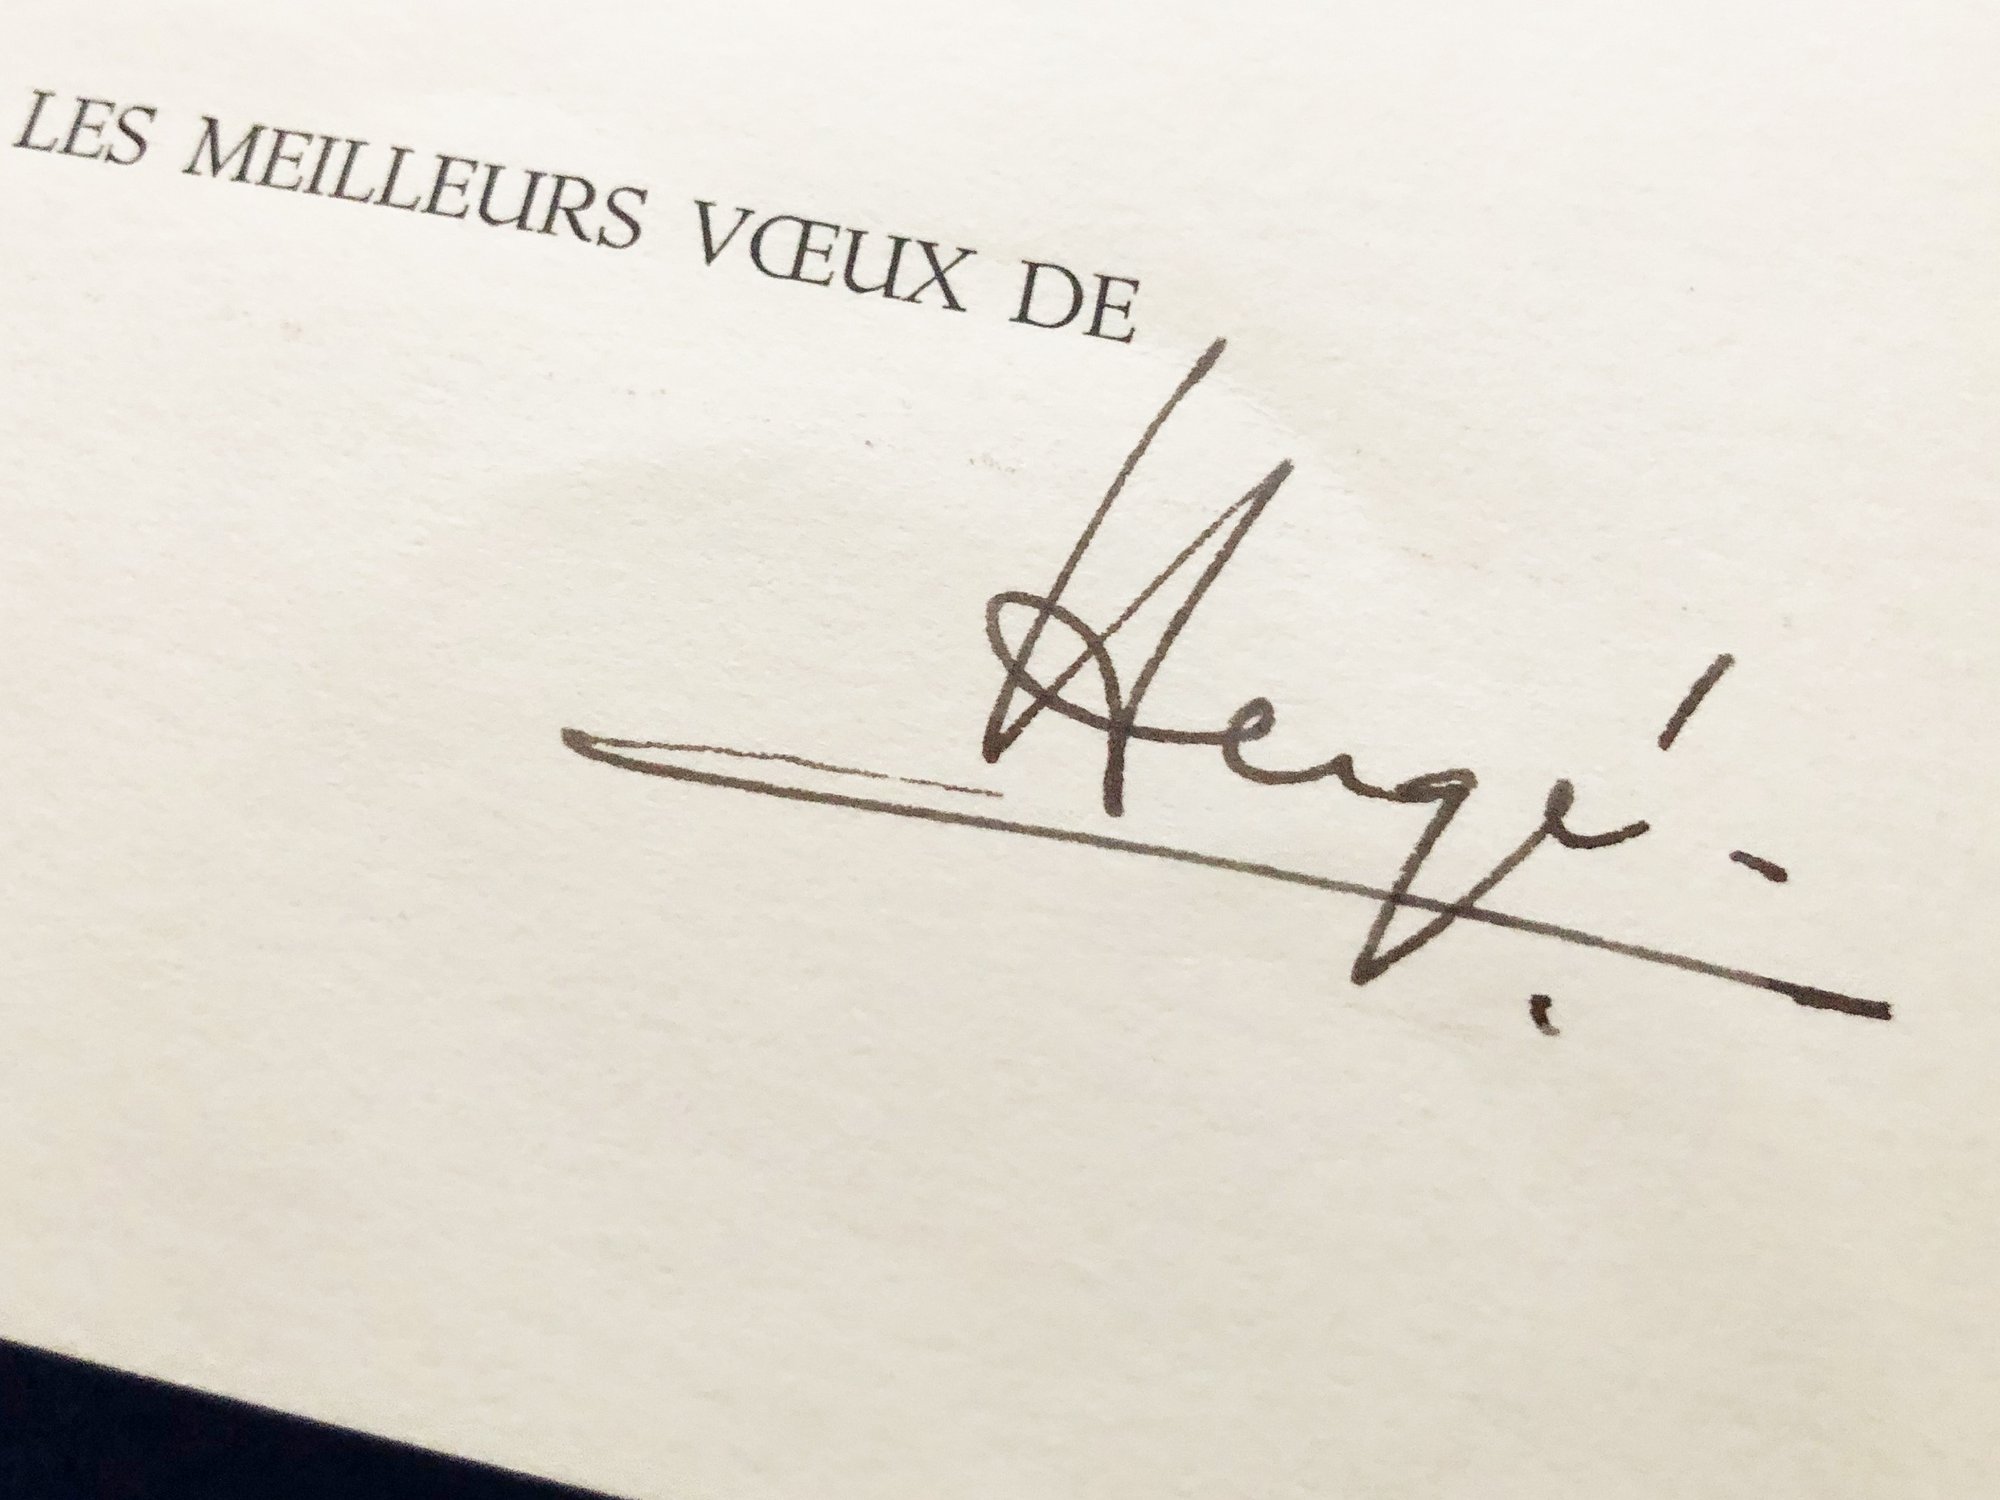 LES MEILLEURS VŒUX DE
Hergé -